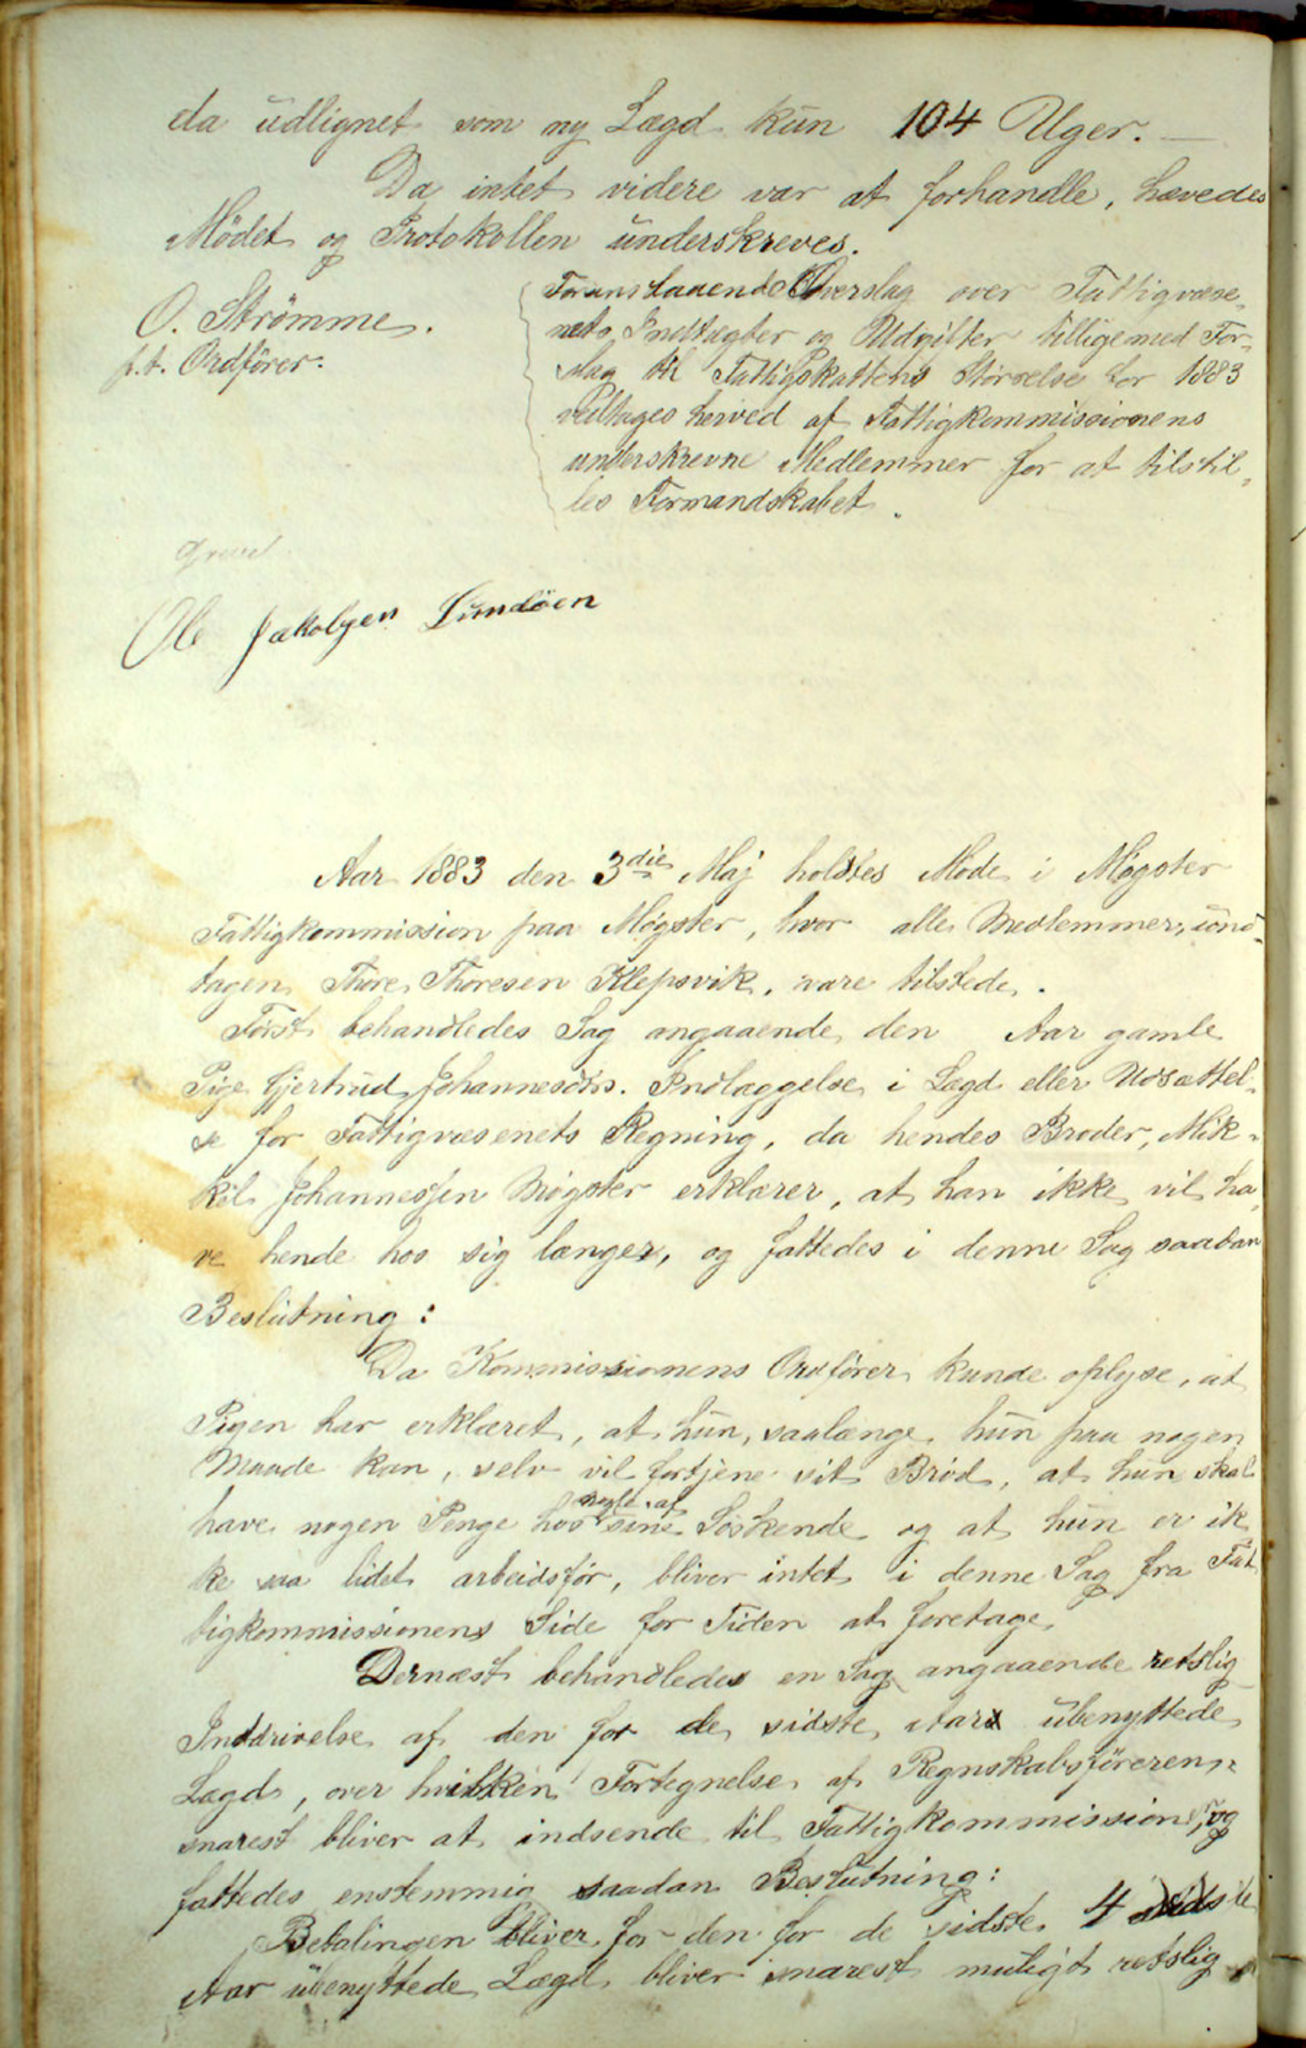 da udlignet som ny Lægd kun 104 Uger. —
Da intet videre var at forhandle, hævedes
Mødet og Protokollen underskreves.
O. Strömme.
p.t. Ordförer.
Foranstaaende Overslag over Fattigvæse-
nets Indtægter og Udgifter tilligemed For-
slag til Fattigskattens Størrelse for 1883
vedtages herved af Fattigkommissionens
underskrevne Medlemmer for at tilstil-
les Formandskabet.
Ole Jakobsen Sundöen
Aar 1883 den 3die Maj holdtes Møde i Møgster
Fattigkommission paa Møgster, hvor alle Medlemmer, und-
tagen Thore Thoresen Klepsvik, vare tilstede.
Først behandledes Sag angaaende den Aar gamle
Pige Gjertrud Johannesdtrs. Indlæggelse i Lægd eller Udsættel-
se for Fattigvæsenets Regning, da hendes Broder, Mik-
kel Johannessen Møgster erklærer, at han ikke vil ha-
ve hende hos sig længer, og fattedes i denne Sag saadan
Beslutning:
Da Kommissionens Ordfører kunde oplyse, at
Pigen har erklæret, at hun, saalænge hun paa nogen
Maade kan, selv vil fortjene sit Brød, at hun skal
have nogen Penge hos nogle af sine Søskende og at hun er ik
ke saa lidet arbeidsfør, bliver intet i denne Sag fra Fat
tigkommissionens Side for Tiden at foretage.
Dernæst behandledes en Sag angaaende retslig
Inddrivelse af den for de sidste Aar ubenyttede
Lægd, over hvilken Fortegnelse af Regnskabsføreren
snarest bliver at indsende til Fattigkommissionen, og
fattedes enstemmig saadan Beslutning:
Betalingen bliver for den for de sidste 4 sidste
Aar ubenyttede Lægd bliver snarest muligt retslig